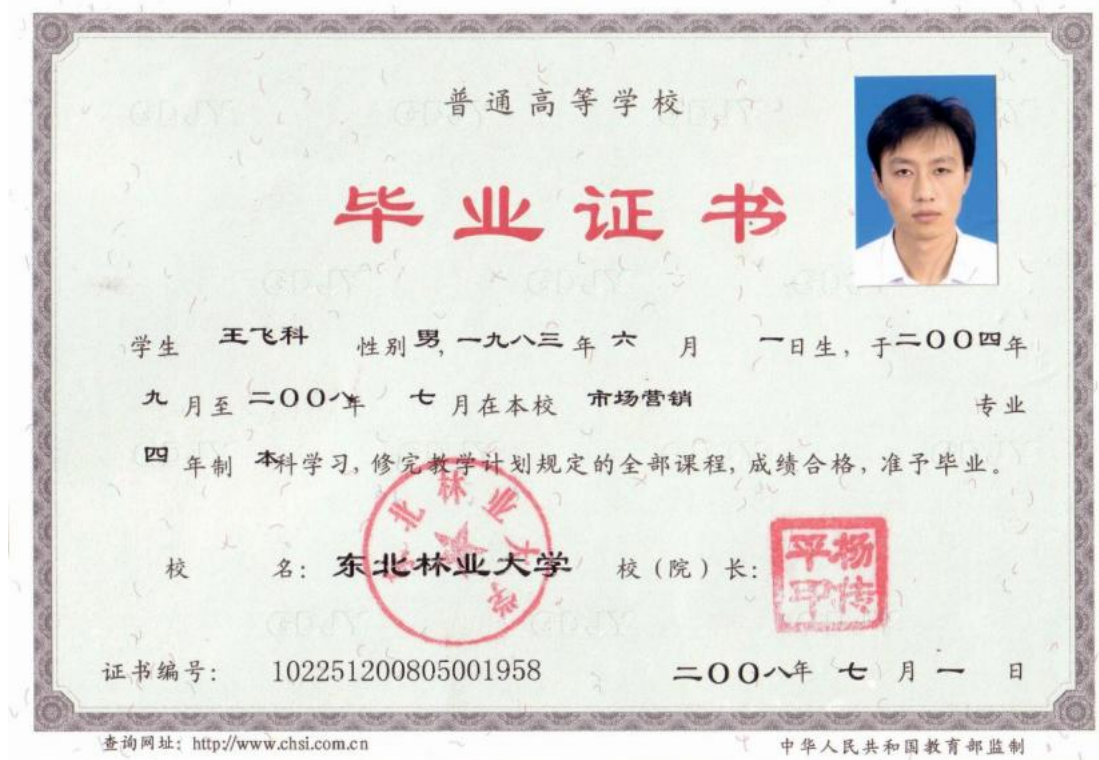 普通高等学校
毕业证书
学生 王飞科 性别 男, 一九八三 年 六 月 一 日生, 于 二〇〇四 年
九 月至 二〇〇八 年 七 月在本校 市场营销 专业
四 年制 本 科学习, 修完教学计划规定的全部课程, 成绩合格, 准予毕业。
东北林业大学
校 名: 东北林业大学 校(院)长: 杨传平印
证书编号: 102251200805001958 二〇〇八 年 七 月 一 日
查询网址: http://www.chsi.com.cn 中华人民共和国教育部监制